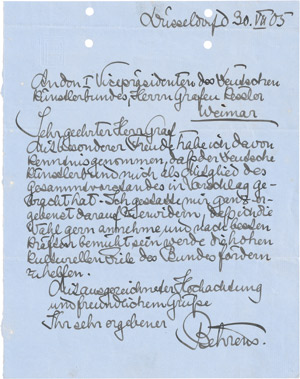 Düsseldorf 30. VII 05
An den I Vicepräsidenten des Deutschen
Künstlerbundes, Herrn Grafen Kessler
Weimar
Sehr geehrter Herr Graf
Mit besonderer Freude habe ich davon
Kenntnis genommen, daß der Deutsche
Künstlerbund mich als Mitglied des
Gesammtvorstandes in Vorschlag ge-
bracht hat. Ich gestatte mir ganz er-
gebenst darauf zu erwidern, daß ich die
Wahl gern annehme und nach besten
Kräften bemüht sein werde die hohen
kulturellen Ziele des Bundes fördern
zu helfen.
Mit ausgezeichneter Hochachtung
und freundlichem Gruße
Ihr sehr ergebener
Behrens.